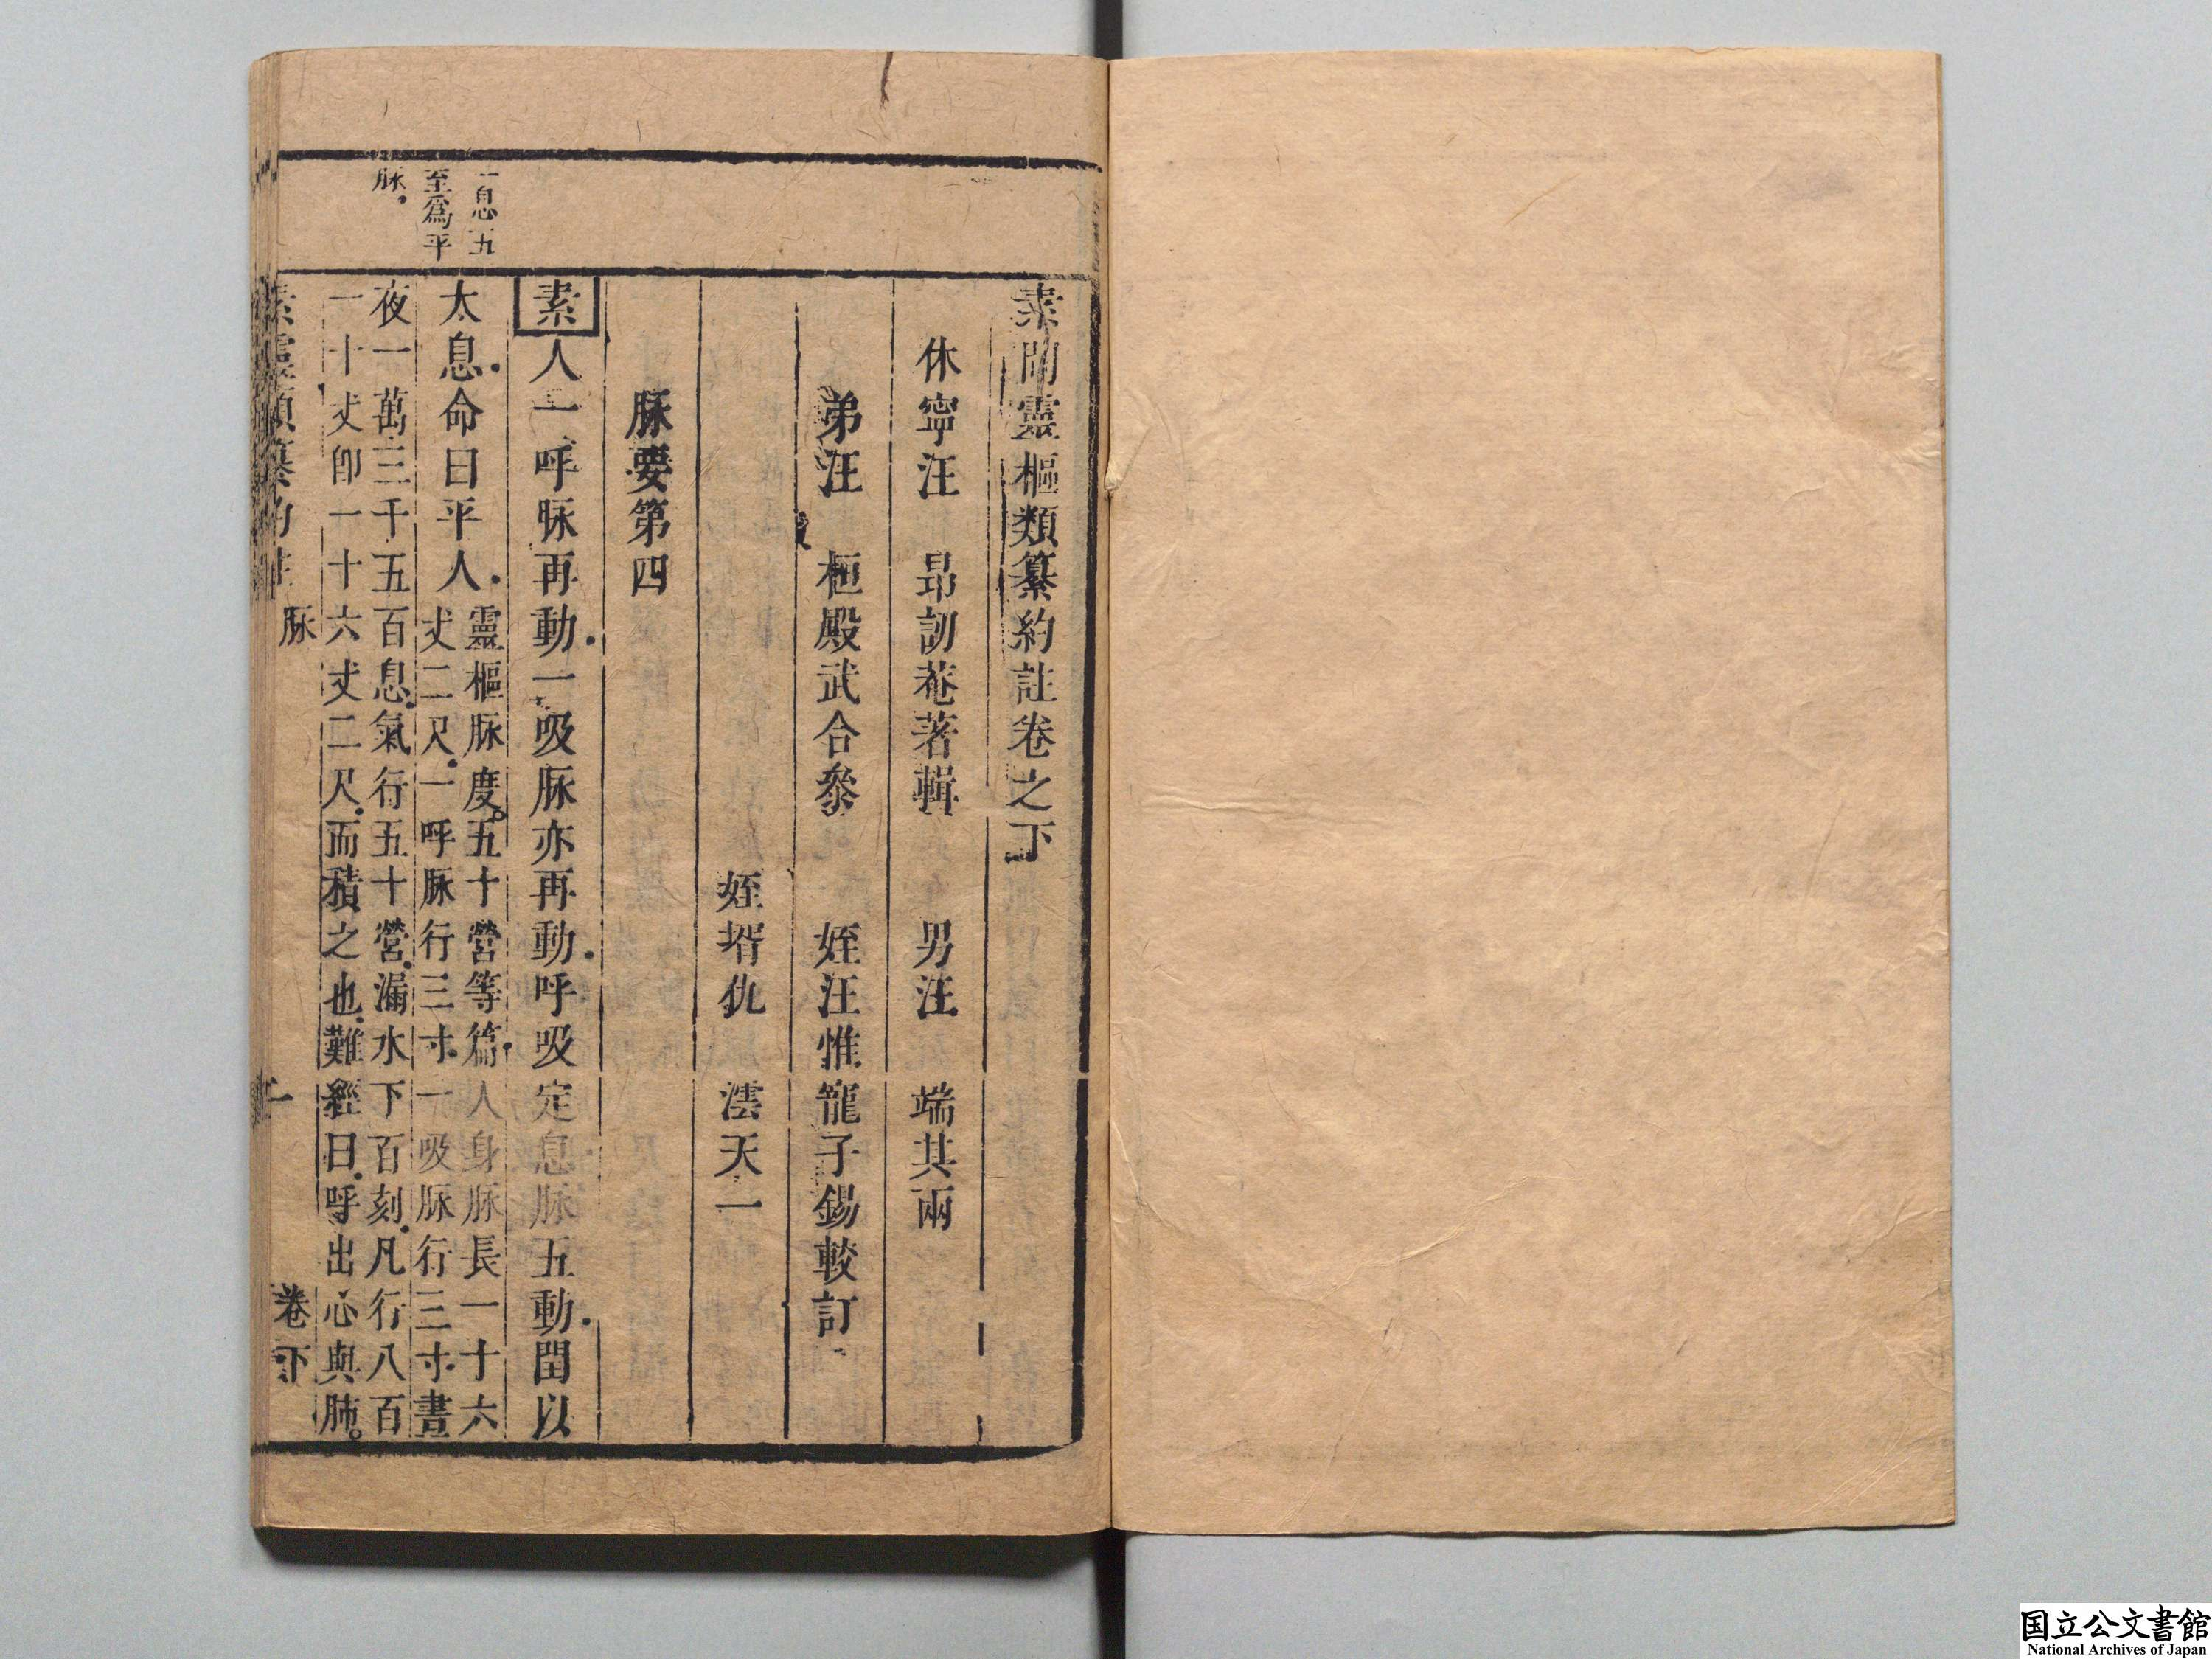 素問靈樞類纂約註卷之下
休寧汪　昂訒菴著輯　男汪　端其兩
弟汪　桓殿武合參　姪汪惟寵子錫較訂
姪壻仇　澐天一
脉要第四
一息五
至爲平
脉
素人一呼脉再動一吸脉亦再動呼吸定息脉五動閏以
太息命曰平人靈樞脉度五十營等篇人身脉長一十六
丈二尺一呼脉行三寸一吸脉行三寸晝
夜一萬三千五百息氣行五十營漏水下百刻凡行八百
一十丈卽一十六丈二尺而積之也難經曰呼出心與肺
素靈類纂約註　脉　一　卷下
国立公文書館
National Archives of Japan